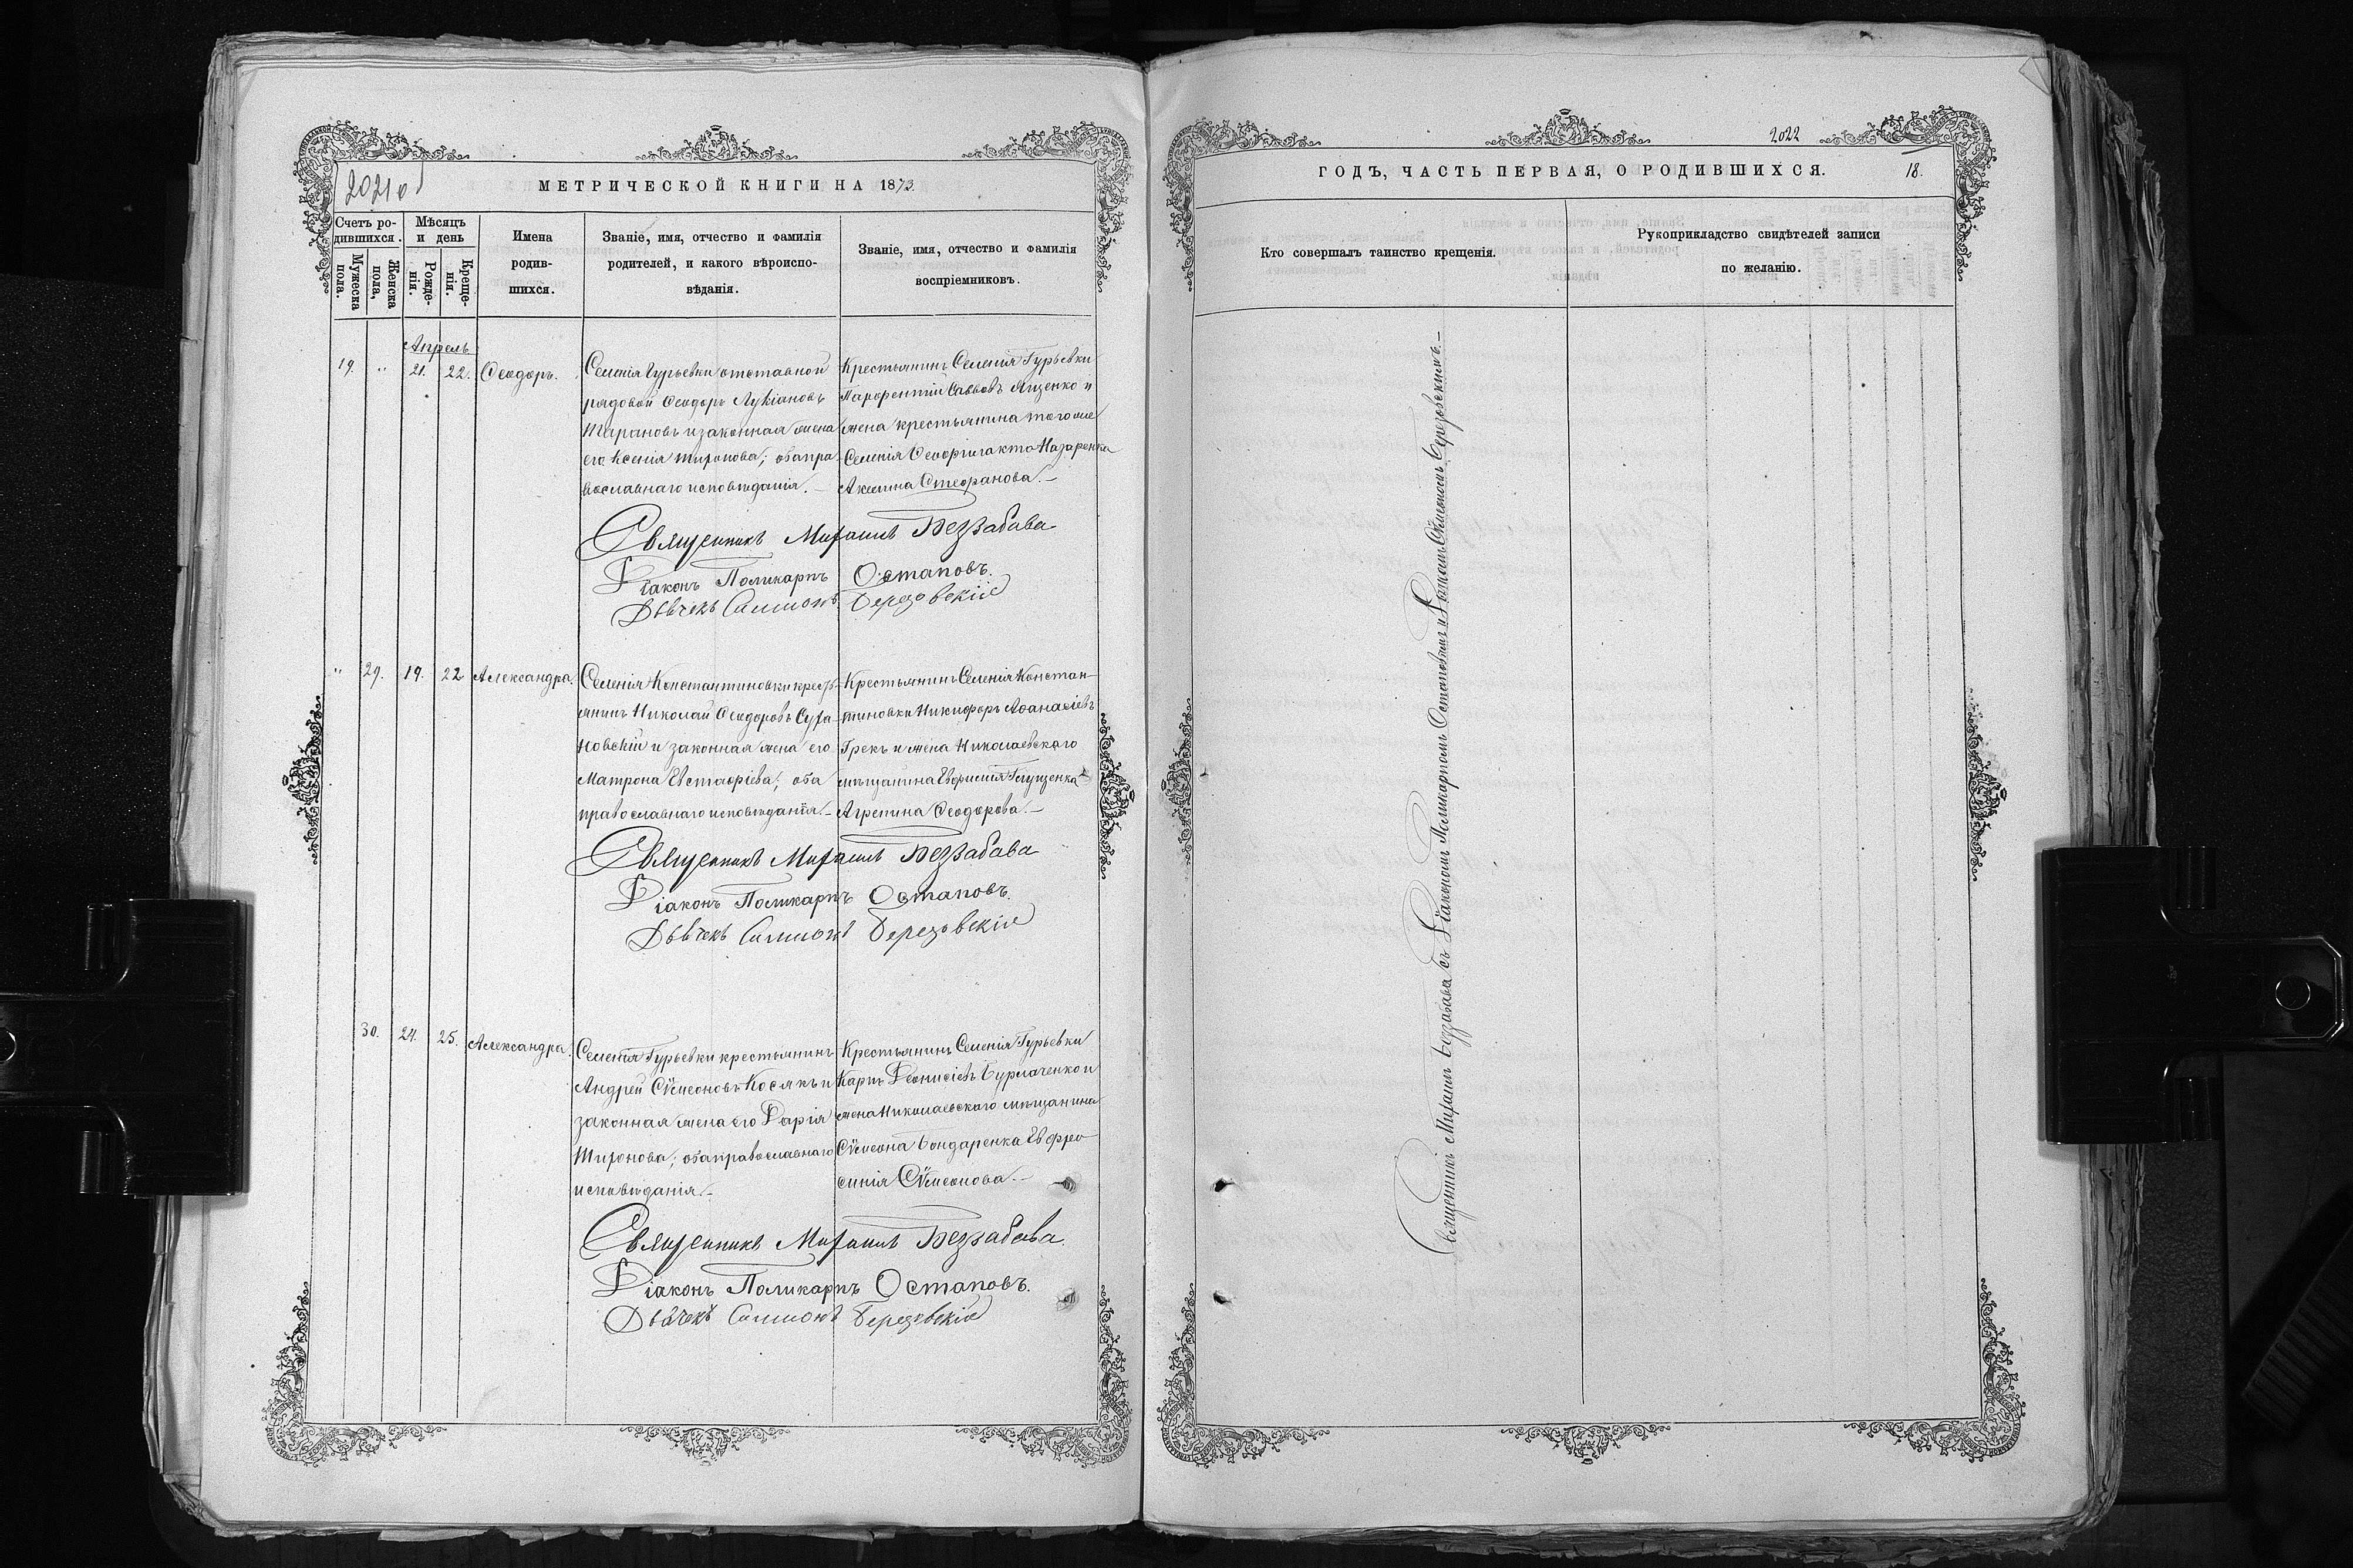 2021 об
МЕТРИЧЕСКОЙ КНИГИ НА 1873.
Счетъ ро-
дившихся.
Мужеска
пола.
Женска
пола,
Мѣсяцъ
и день
Рожде-
нія.
Креще-
нія.
Имена
родив-
шихся.
Званіе, имя, отчество и фамилія
родителей, и какого вѣроиспо-
вѣданія.
Званіе, имя, отчество и фамилія
воспріемниковъ.
Апрель
19. " 21. 22. Ѳеодоръ.
Селенія Гурьевки отставной
рядовой Ѳеодоръ Лукіановъ
Тарановъ и законная жена
его Ксенія Миронова; оба пра-
вославнаго исповѣданія. –
Крестьянинъ Селенія Гурьевки
Парфентій Саввовъ Яценко и
жена крестьянина того же
Селенія Ѳеофилакта Назаренка
Акилина Стефанова. –
Священникъ Михаилъ Беззабава
Діаконъ Поликарпъ Остаповъ.
Дьячекъ Симионъ Березовскій
" 29. 19. 22 Александра.
Селенія Константиновки кресть-
янинъ Николай Ѳеодоровъ Суха-
новскій и законная жена его
Матрона Евстафіева; оба
православнаго исповѣданія. –
Крестьянинъ Селенія Констан-
тиновки Никифоръ Аѳанасіевъ
Грекъ и жена Николаевскаго
мѣщанина Евфимія Глущенка
Агрепина Ѳеодорова. –
Священникъ Михаилъ Беззабава
Діаконъ Поликарпъ Остаповъ.
Дьячекъ Симионъ Березовскій
30. 24. 25. Александра.
Селенія Гурьевки крестьянинъ
Андрей Сѵмеоновъ Косякъ и
законная жена его Дарія
Миронова; оба православнаго
исповѣданія. –
Крестьянинъ Селенія Гурьевки
Карпъ Діонисіевъ Бурлаченко и
жена Николаевского мѣщанина
Сѵмеона Бондаренка Евфро-
синія Сѵмеонова. –
Священникъ Михаилъ Беззабава.
Діаконъ Поликарпъ Остаповъ.
Дьячекъ Симионъ Березовскій
2022
ГОДЪ, ЧАСТЬ ПЕРВАЯ, О РОДИВШИХСЯ.
18.
Кто совершалъ таинство крещенія.
Рукоприкладство свидѣтелей записи
по желанію.
Священникъ Михаилъ Беззабава съ Діакономъ Поликарпомъ Остаповымъ и Дьячкомъ Сѵмеономъ Березовскимъ. –